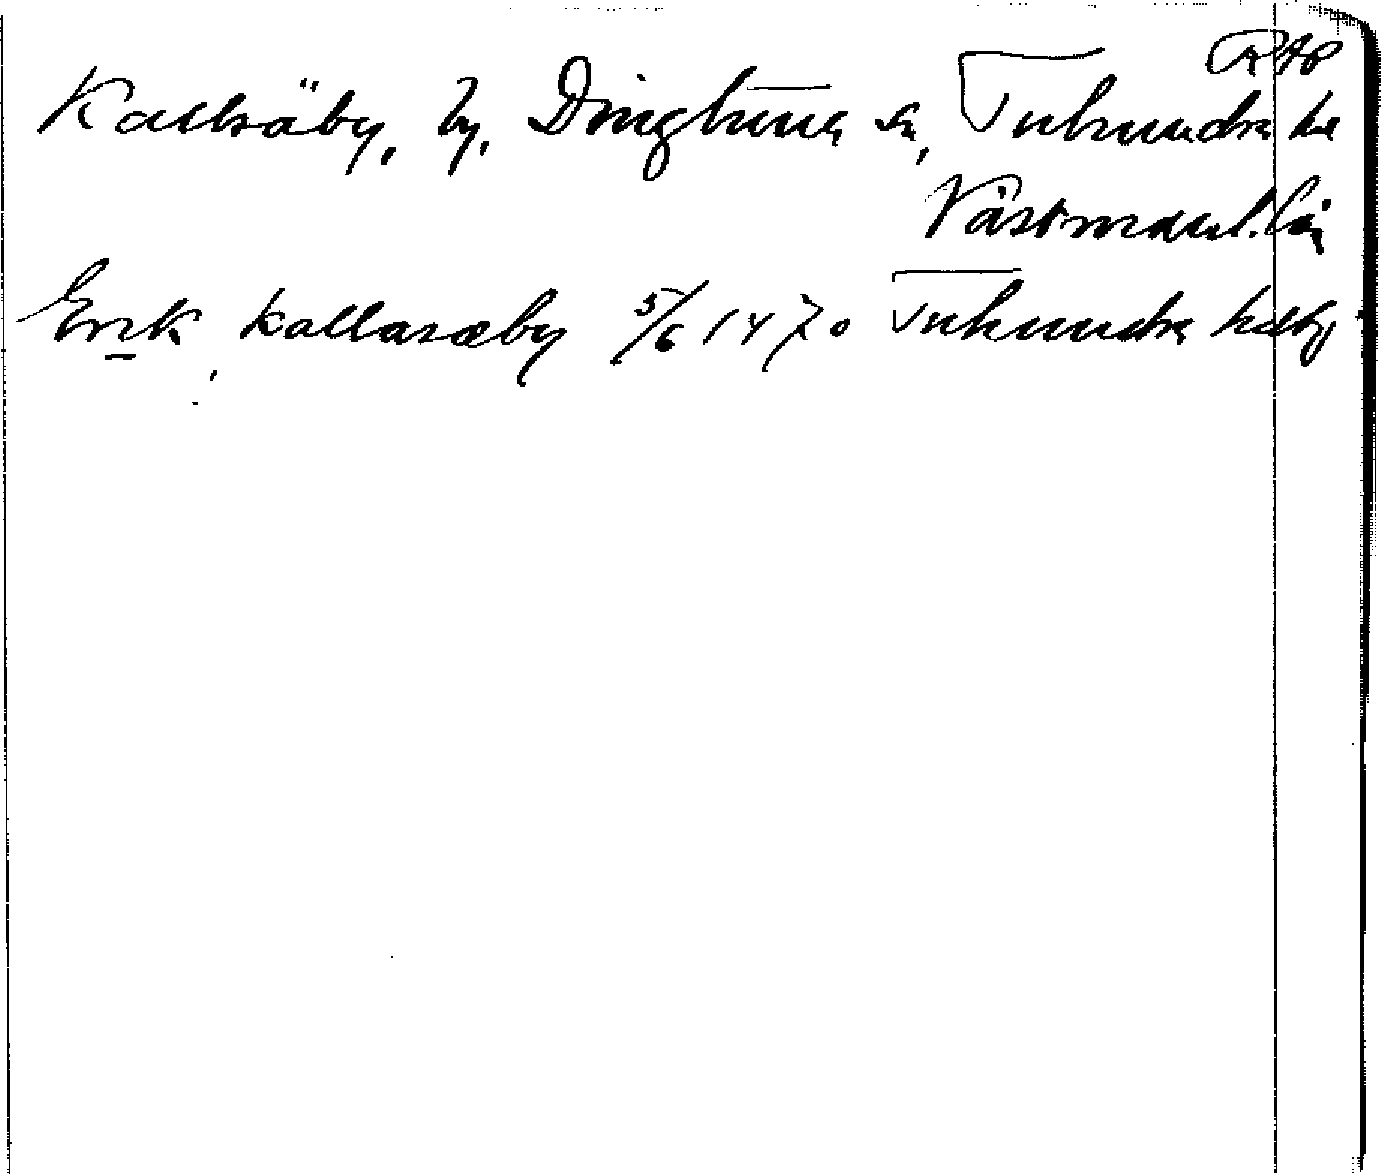 RAP
Kallsäby, by, Dingtuna sn, Tuhundra hd
Västmanl. län
Erik, kallasæby 5/6 1470 Tuhundra hdbr